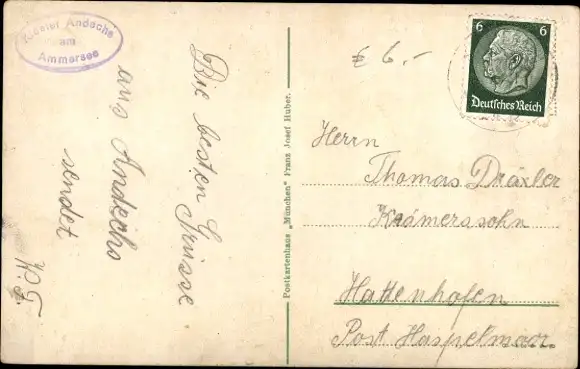 Kloster Andechs
am
Ammersee
Die besten Grüsse
aus Andechs
sendet
Postkartenhaus „München“ Franz Josef Huber.
€ 6.-
6 6
Deutsches Reich
Herrn
Thomas Dräxler
Krämerssohn
Hattenhofen
Post Haspelmoor